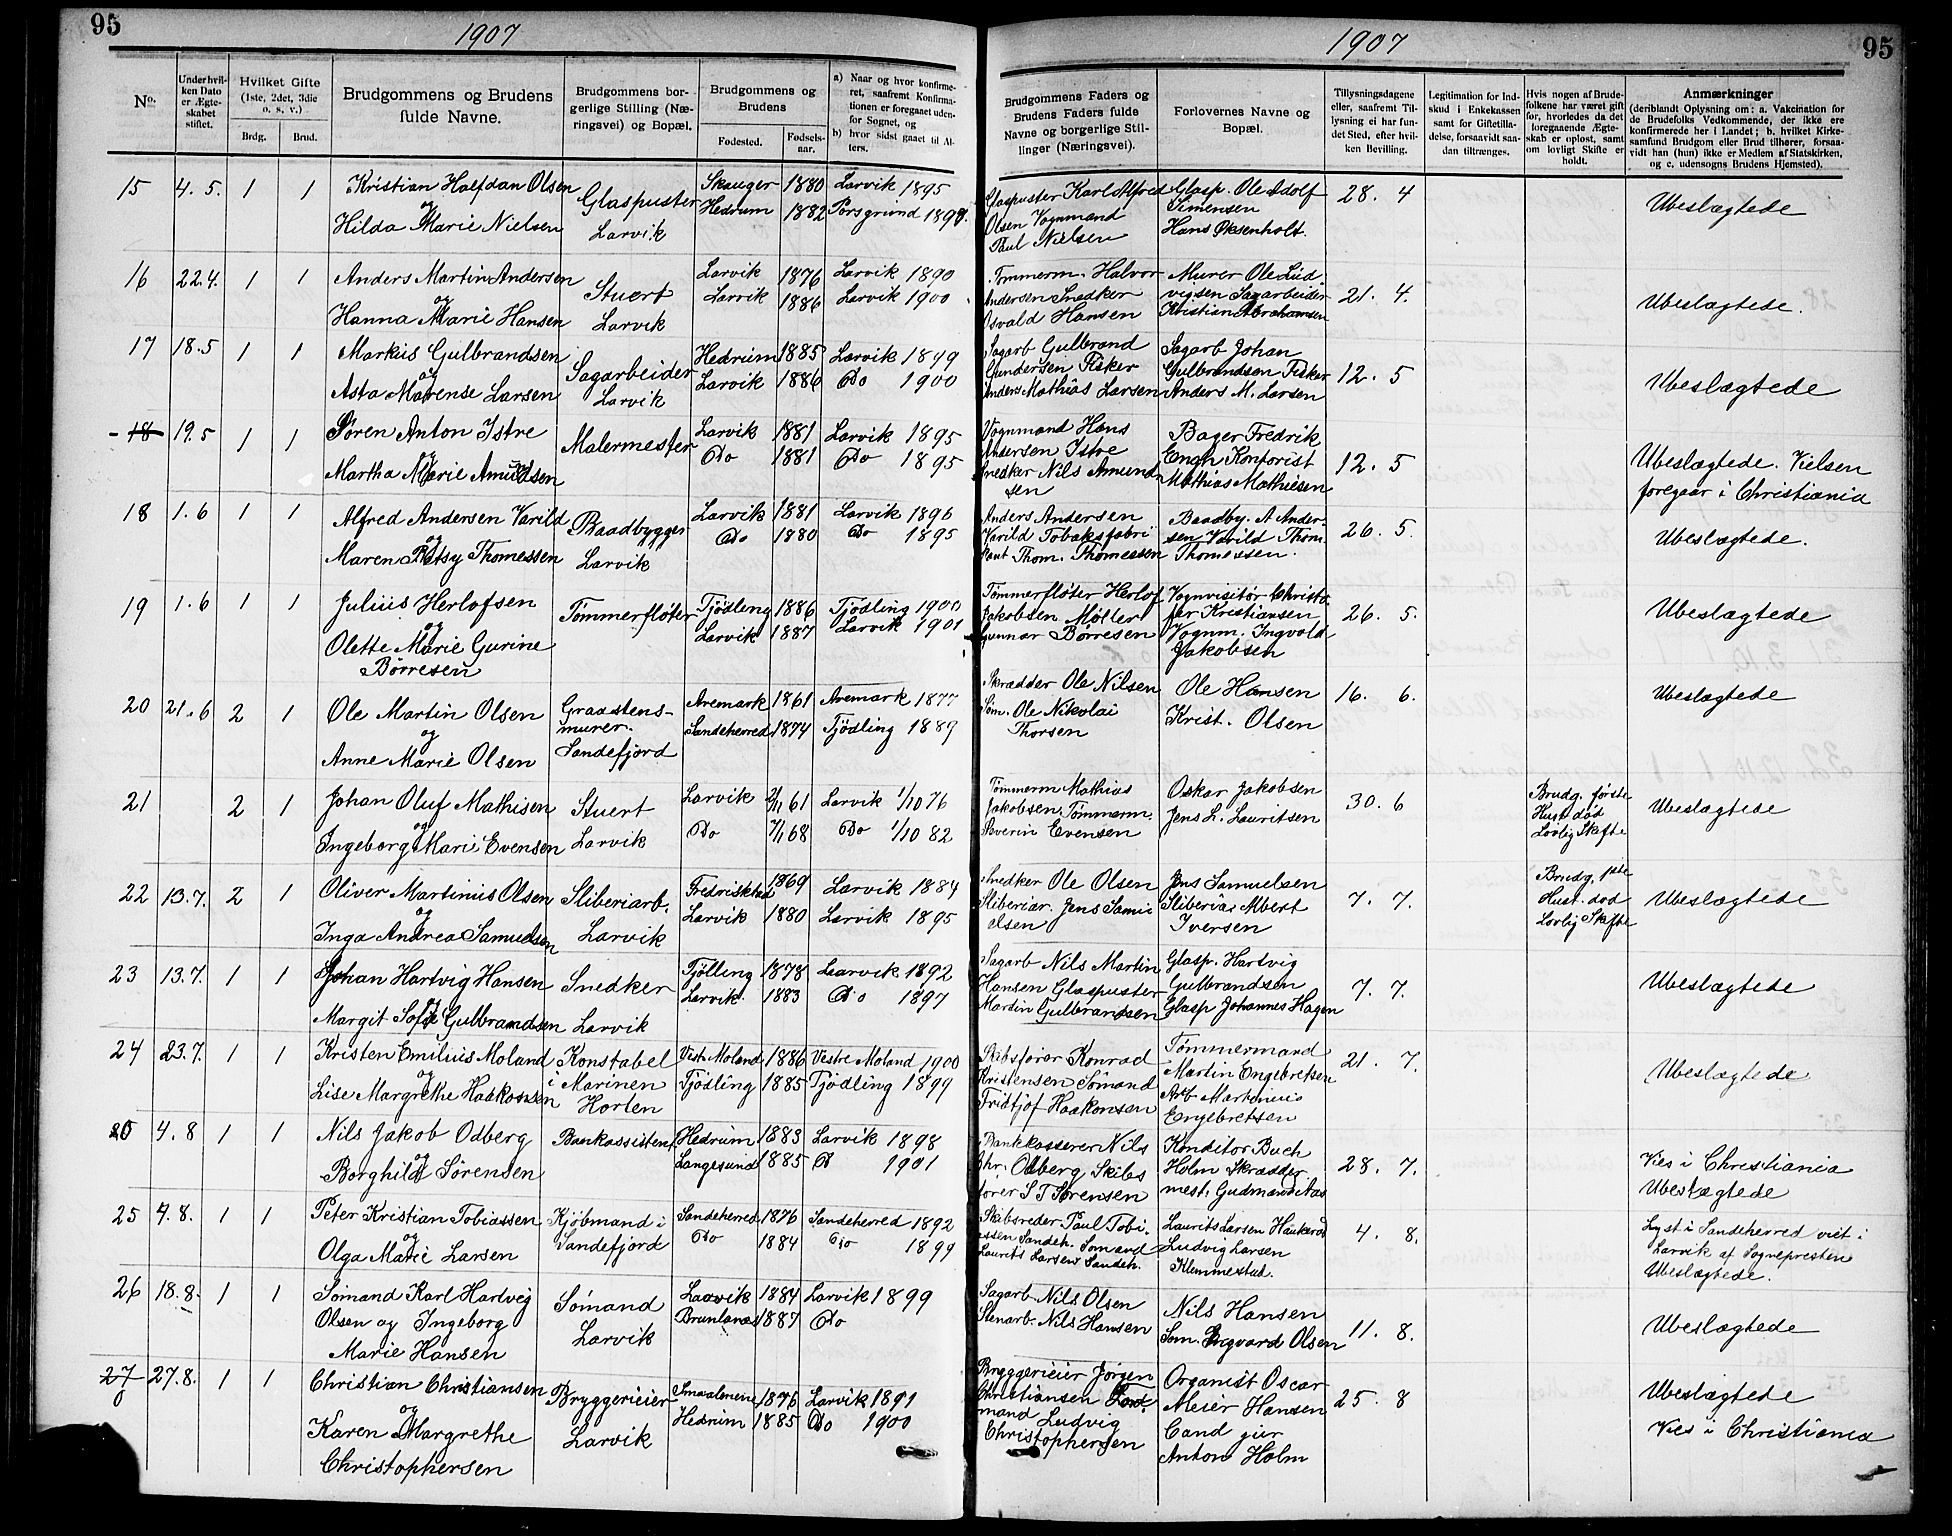 95
1907
No.
Under hvilken Dato er Ægteskabet stiftet.
Hvilket Gifte (1ste, 2det, 3die o. s. v.)
Brdg. Brud.
Brudgommens og Brudens fulde Navne.
Brudgommens borgerlige Stilling (Næringsvei) og Bopæl.
Brudgommens og Brudens
Fødested. Fødselsaar.
a) Naar og hvor konfirmeret, saafremt Konfirmationen er foregaaet udenfor Sognet, og
b) hvor sidst gaaet til Alters.
1907
95
Brudgommens Faders og Brudens Faders fulde Navne og borgerlige Stillinger (Næringsvei).
Forlovernes Navne og Bopæl.
Tillysningsdagene eller, saafremt Tillysning ei har fundet Sted, efter hvilken Bevilling.
Legitimation for Indskud i Enkekassen samt for Giftetilladelse, forsaavidt saadan tiltrænges.
Hvis nogen af Brudefolkene har været gift før, hvorledes da det foregaaende Ægteskab er opløst, samt om lovligt Skifte er holdt.
Anmærkninger
(deriblandt Oplysning om: a. Vakcination for de Brudefolks Vedkommende, der ikke ere konfirmerede her i Landet; b. hvilket Kirkesamfund Brudgom eller Brud tilhører, forsaavidt han (hun) ikke er Medlem af Statskirken, og c. udensogns Brudens Hjemsted).
15 4. 5. 1 1 Kristian Halfdan Olsen
og
Hilda Marie Nielsen
Glaspuster
Larvik
Skauger 1880 Larvik 1895
Hedrum 1882 Porsgrund 1898.
Glaspuster Karl Alfred
Olsen Vognmand
Paul Nielsen
Glasp. Ole Adolf
Simensen
Hans Øksenholt.
28. 4
Ubeslægtede
16 22.4. 1 1 Anders Martin Andersen
og
Hanna Marie Hansen
Stuert
Larvik
Larvik 1876 Larvik 1890
Larvik 1886 Larvik 1900
Tømmerm. Halvor
Andersen Snedker
Osvald Hansen
Murer Ole Lud
vigsen Sagarbeider
Kristian Abrahamsen
21. 4.
Ubeslægtede.
17 18.5 1 1 Markus Gulbrandsen
og
Asta Marense Larsen
Sagarbeider
Larvik
Hedrum 1885 Larvik 1899
Larvik 1886 Do 1900
Sagarb Gulbrand
Gundersen Fisker
Anders Mathias Larsen
Sagarb Johan
Gulbrandsen Fisker
Anders M. Larsen
12. 5
Ubeslægtede
18 19.5 1 1 Søren Anton Istre
og
Martha Marie Amundsen
Malermester
Larvik 1881 Larvik 1895
Do 1881 Do 1895
Vognmand Hans
Andersen Istre
Snedker Nils Amund
sen
Bager Fredrik
Engh Kontorist
Mathias Mathiesen
12. 5
Ubeslægtede. Vielsen
foregaar i Christiania
18 1.6 1 1 Alfred Andersen Varild
og
Maren Betsy Thomessen
Baadbygger
Larvik
Larvik 1881 Larvik 1896
Do 1880 Do 1895
Anders Andersen
Varild Tobaksfabri
kant Thom. Thomessen
Baadby. A Ander-
sen Varild Thom
Thomessen.
26. 5.
Ubeslægtede.
19 1.6 1 1 Julius Herlofsen
og
Olette Marie Gurine
Børresen
Tømmerfløter
Tjødling 1886 Tjødling 1900
Larvik 1887 Larvik 1901
Tømmerfløter Herlof
Jakobsen Møller
Gunnar Børresen
Vognvisitør Christo
fer Kristiansen
Vognm. Ingvold
Jakobsen
26. 5.
Ubeslægtede
20 21.6 2 1 Ole Martin Olsen
og
Anne Marie Olsen
Graastens-
murer.
Sandefjord
Aremark 1861 Aremark 1877
Sandeherred 1874 Tjödling 1889
Skrædder Ole Nilsen
Søm. Ole Nikolai
Thorsen
Ole Hansen
Krist. Olsen
16. 6.
Ubeslægtede
21 2 1 Johan Oluf Mathisen
og
Ingeborg Marie Evensen
Stuert
Larvik
Larvik 2/11 61 Larvik 1/10 76
Do 7/1 68 Do 1/10 82
Tømmerm Mathias
Jakobsen Tømmerm.
Severin Evensen
Oskar Jakobsen
Jens L. Lauritsen
30. 6
Brudg. første
Hust. død
Lovlig Skifte
Ubeslægtede
22 13.7. 2 1 Oliver Martinius Olsen
og
Inga Andrea Samuelsen
Sliberiarb.
Larvik
Fredrikstad 1869 Larvik 1884
Larvik 1880 Larvik 1895
Snedker Ole Olsen
Sliberiar. Jens Samu
elsen
Jens Samuelsen
Sliberiar Albert
Iversen
7. 7.
Brudg. 1ste
Hust. død
Lovlig Skifte
Ubeslægtede
23 13.7. 1 1 Johan Hartvig Hansen
og
Margit Sofie Gulbrandsen
Snedker
Larvik
Tjölling 1878 Larvik 1892
Larvik. 1883 Do 1897
Sagarb Nils Martin
Hansen Glaspuster
Martin Gulbrandsen
Glasp. Hartvig
Gulbrandsen
Glasp Johannes Hagen
7. 7.
Ubeslægtede
24 23.7. 1 1 Kristen Emilius Moland
og
Lise Margrethe Haakonsen
Konstabel
i Marinen
Horten
Vestr. Moland 1886 Vestre Moland 1900
Tjödling 1885 Tjödling 1899
Skibsfører Konrad
Kristensen Sømand
Fridtjof Haakonsen
Tømmermand
Martin Engebretsen
Arb Martinius
Engebretsen
21. 7.
Ubeslægtede
4.8 1 1 Nils Jakob Odberg
og
Borghild Sørensen
Bankassistent
Hedrum 1883 Larvik 1898
Langesund 1885 D 1901
Bankkasserer Nils
Chr. Odberg Skibs
fører S T Sørensen
Konditor Buch
Holm Skrædder
mest. Gudmand Aas
28. 7.
Vies i Christiania
Ubeslægtede
25 4.8. 1 1 Peter Kristian Tobiassen
og
Olga Marie Larsen
Kjöbmand i
Sandefjord
Sandeherred 1876 Sandeherred 1892
Do 1884 Do 1899
Skibsreder Paul Tobi-
assen Sandeh. Sømand
Laurits Larsen Sandeh.
Laurits Larsen Haukerød
Ludvig Larsen
Klemmestud.
4. 8.
Lyst i Sandeherred viet i
Larvik af Sognepresten
Ubeslægtede.
26 18.8. 1 1 Sömand Karl Hartvig
Olsen og Ingeborg
Marie Hansen
Sömand
Larvik
Larvik 1884 Larvik 1899
Brunlanæs 1887 Do
Sagarb Nils Olsen
Stenarb. Nils Hansen
Nils Hansen
Søm. Ingvard Olsen
11. 8.
Ubeslægtede
27 27.8. 1 1 Christian Christiansen
og
Karen Margrethe
Christophersen
Bryggerieier
Larvik
Smaalenene 1876 Larvik 1891
Hedrum 1885 Do 1900
Bryggerieier Jørgen
Christiansen
mand Ludvig
Christophersen
Organist Oscar
Meier Hansen
Cand jur
Anton Holm
25. 8
Ubeslægtede
Vies i Christiania